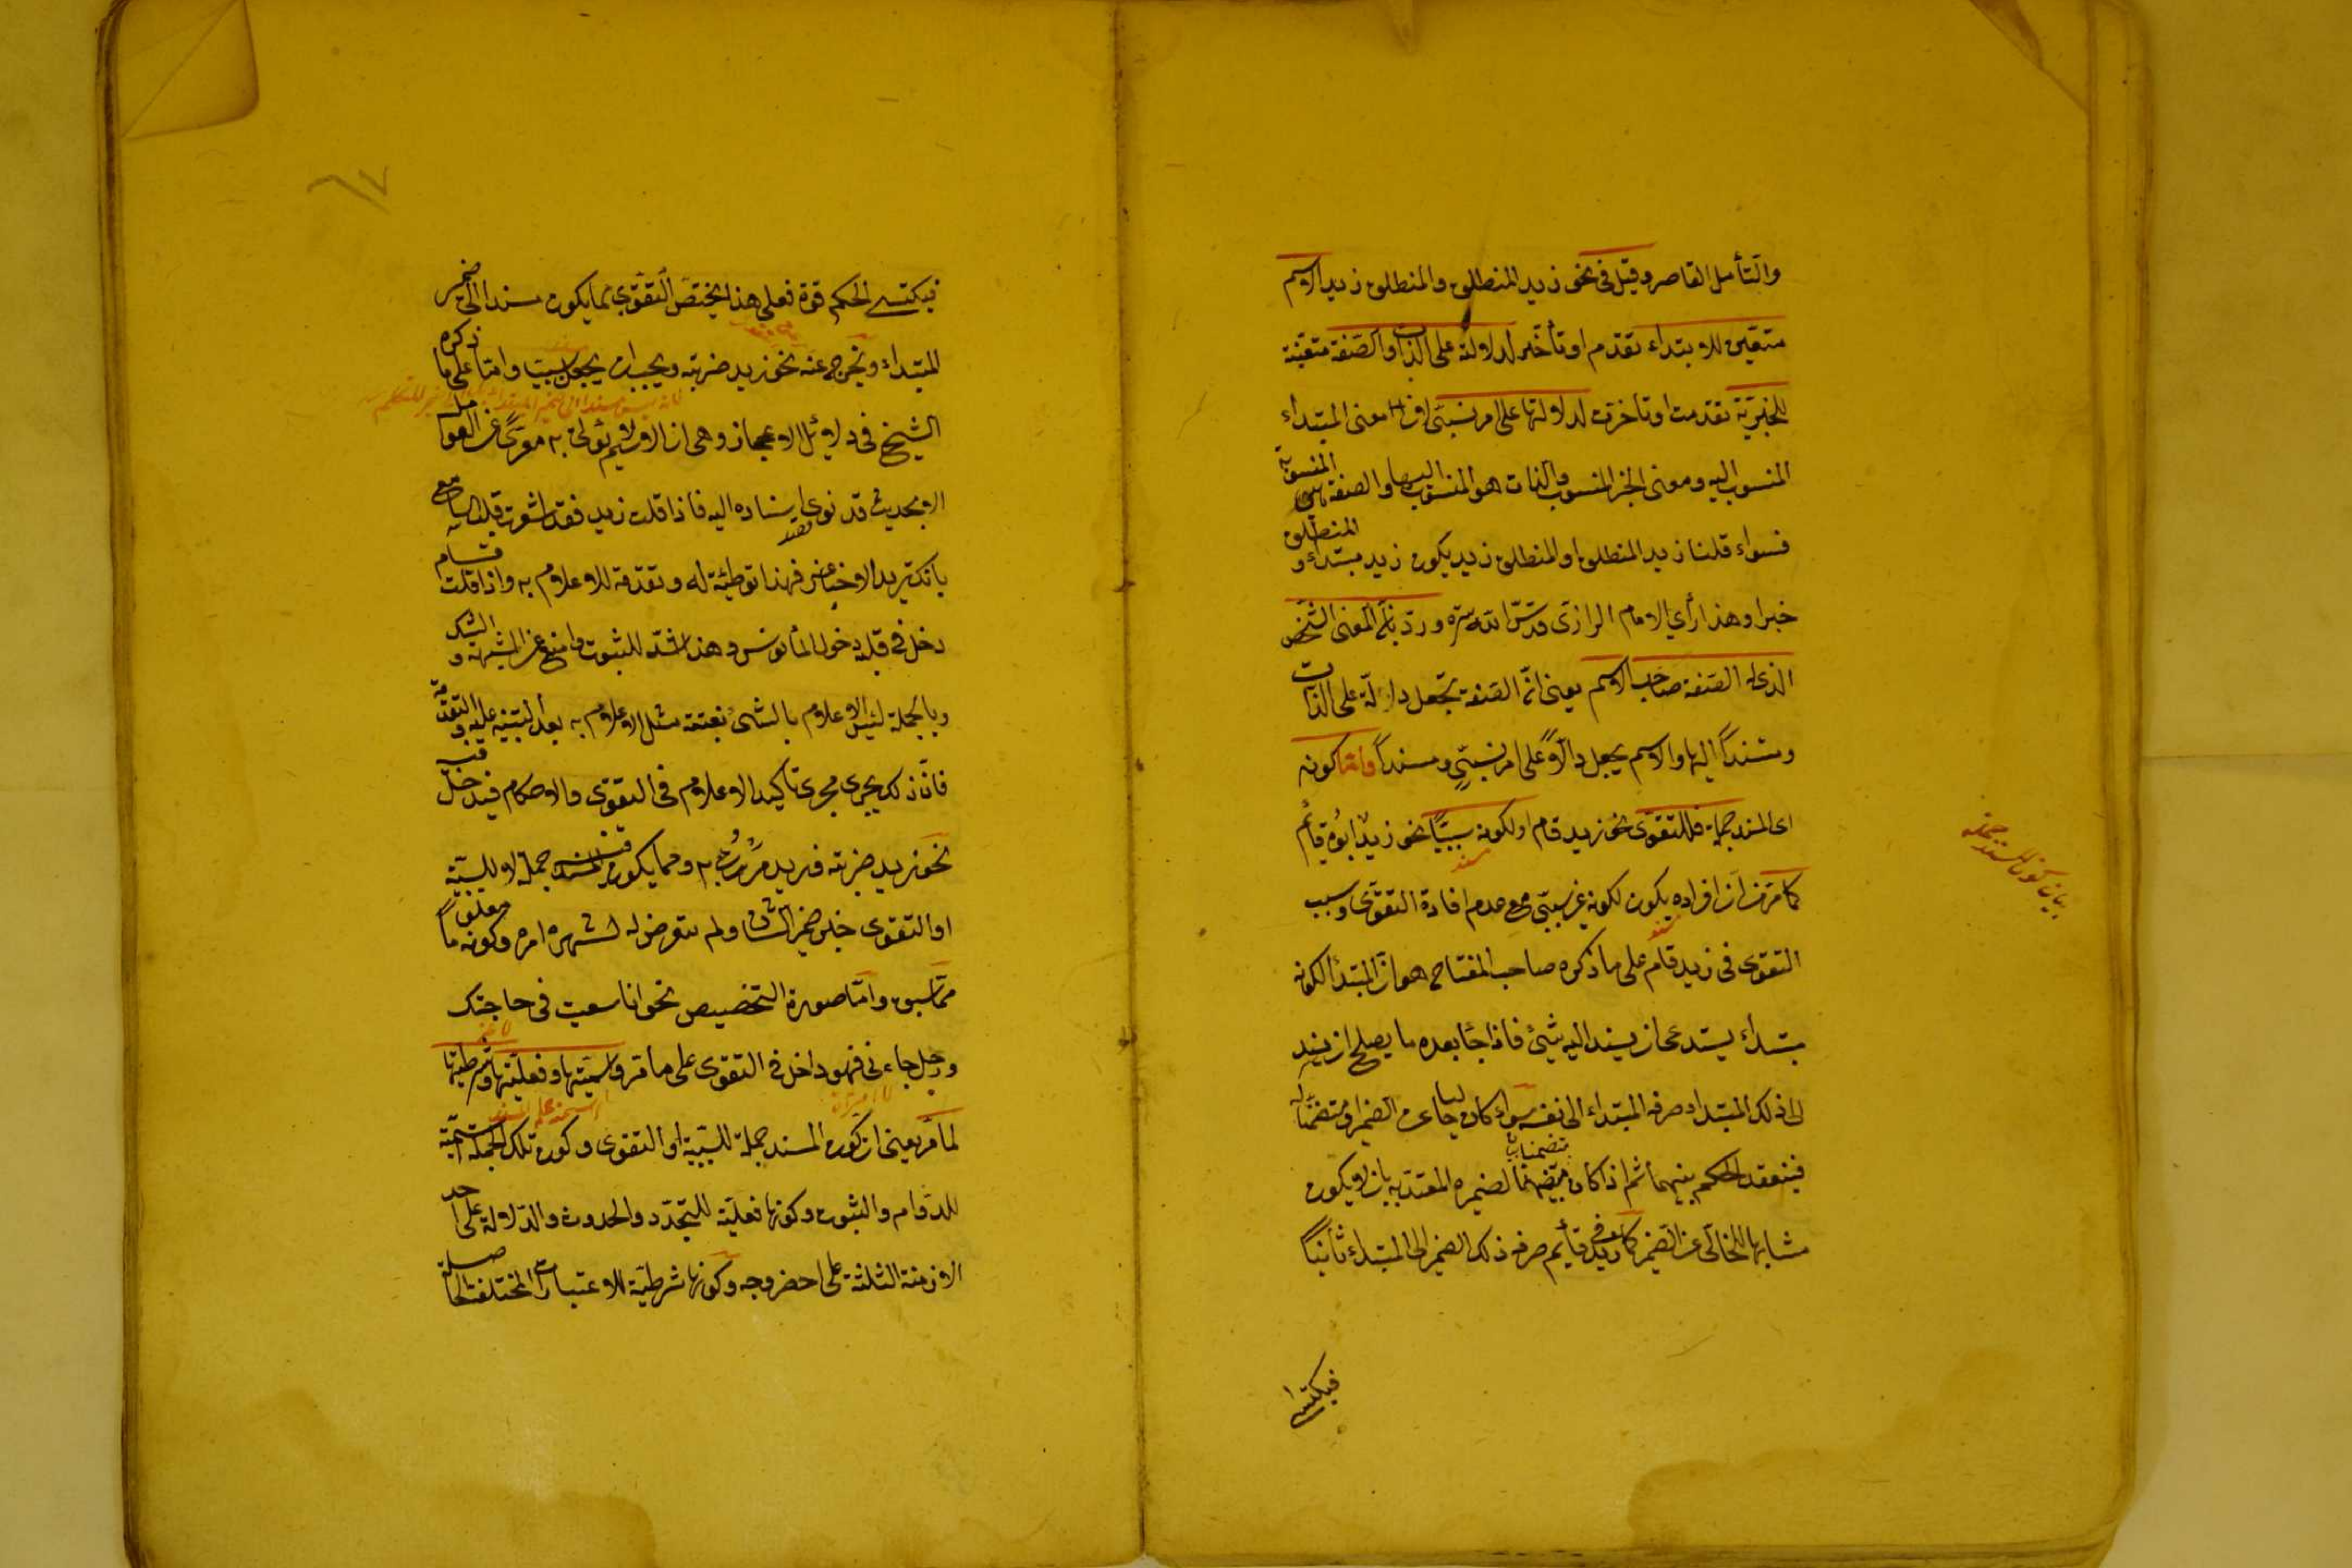 والتأمل القاصر وقيل في نحو زيد المنطلق والمنطلق زيد الاسم
متعين للابتداء تقدم او تأخر لدلالته على الذات والصفة متعينة
للخبرية تقدمت او تأخرت لدلالتها على امر نسبي لان معنى المبتداء
المنسوب اليه ومعنى الخبر المنسوب والذات هو المنسوب اليها والصفة هي المنسوبة
فسواء قلنا زيد المنطلق او المنطلق زيد يكون زيد مبتداء و المنطلق
خبرا وهذا رأي الامام الرازي قدس الله سره ورد بأن المعنى الشخص
الذي له الصفة صاحب الاسم يعنى ان الصفة تجعل دالة على الذات
ومسندا اليها والاسم يجعل دالا على امر نسبي ومسندا واما كونه
اى المسند جملة فللتقوى نحو زيد قام او لكونه سببيا نحو زيد ابوه قائم
كما مر من ان افراده يكون لكونه غير سببي مع عدم افادة التقوى وسبب
التقوى في زيد قام على ما ذكره صاحب المفتاح هو ان المبتدأ لكونه
مبتداء يستدعى ان يسند اليه شئ فاذا جاء بعده ما يصلح ان يسند
الى ذلك المبتداء صرفه المبتداء الى نفسه سواء كان خاليا عن الضمير او متضمنا له
فينعقد الحكم بينهما ثم اذا كان متضمنا لضميره المعتد به بان لا يكون
مشابها للخالى عن الضمير كما في زيد قائم صرفه ذلك الضمير الى المبتداء ثانيا
فيكتسى
بيان كون المسند جملة
فيكتسى الحكم قوة فعلى هذا يختص التقوى بما يكون مسندا الى ضمير
المبتداء ويخرج عنه نحو زيد ضربته ويجب ان يجعل سببيا واما على ما ذكره
الشيخ في دلائل الاعجاز وهى ان الاسم لا يؤتى به معرى عن العوامل
الا لحديث قد نوى اسناده اليه فاذا قلت زيد فقد اشعرت قلب السامع
بانك تريد الاخبار عنه فهذا توطئة له وتقدمة للاعلام به واذا قلت قام
دخل في قلبه دخول المأنوس وهذا اشد للثبوت وامنع عن الشبهة و الشك
وبالجملة ليس الاعلام بالشئ بغتة مثل الاعلام به بعد التنبيه عليه و التقدمة
فان ذلك يجرى مجرى تاكيد الاعلام في التقوى والاحكام فيدخل فيه
نحو زيد ضربته وزيد مررت به ومما يكون المسند فيه جملة لا للسببية
او التقوى خبر ضمير الشان ولم يتعرض له لشهرة امره وكونه معلوما
مما سبق واما صورة التخصيص نحو انا سعيت في حاجتك
ورجل جاءنى فهو داخل في التقوى على ما مر واسميتها وفعليتها وشرطيتها
لما مر يعنى ان كون المسند جملة للسببية او التقوى وكون تلك الجملة اسمية
للدوام والثبوت وكونها فعلية للتجدد والحدوث والدلالة على احد
الازمنة الثلثة على اخصر وجه وكونها شرطية للاعتبارات المختلفة الحاصلة